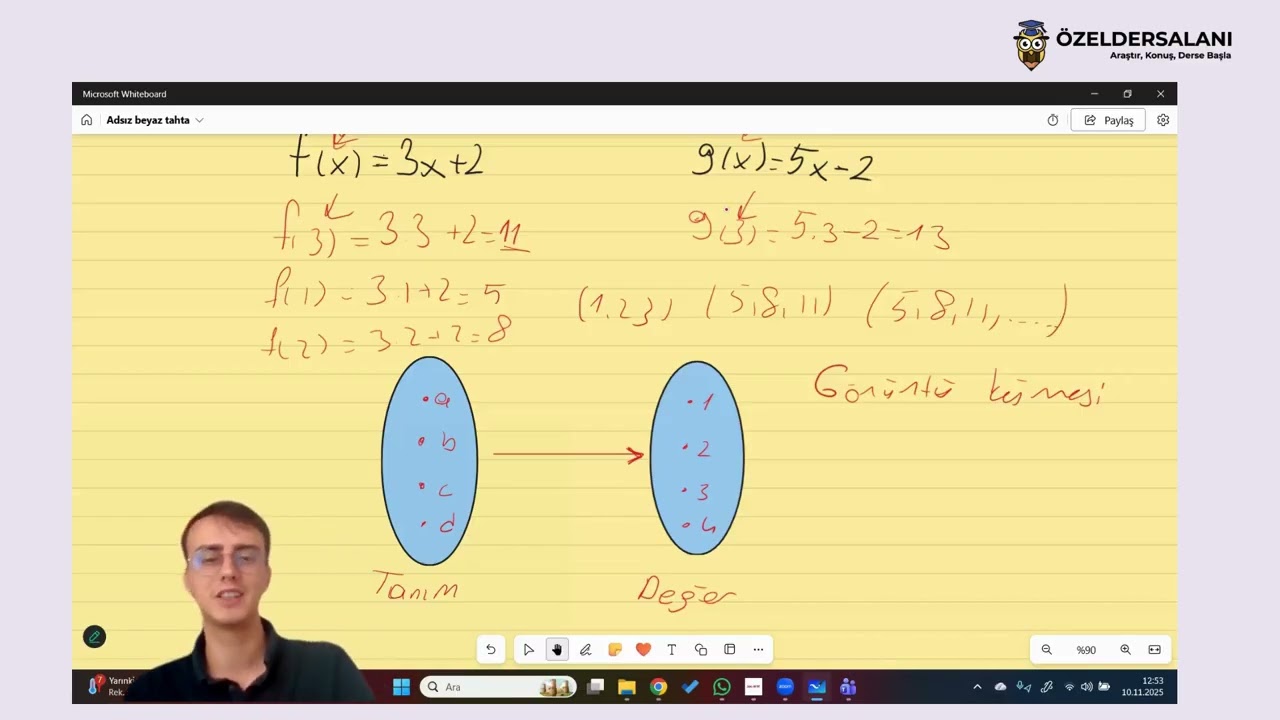 ÖZELDERSALANI
Araştır, Konuş, Derse Başla
Microsoft Whiteboard
Adsız beyaz tahta
Paylaş
f(x) = 3x+2
g(x) = 5x-2
f(3) = 3.3 +2 = 11
g(3) = 5.3-2 = 13
f(1) = 3.1+2 = 5
(1,2,3) (5,8,11) (5,8,11,....)
f(2) = 3.2+2=8
Görüntü kümesi
.a
.b
.c
.d
.1
.2
.3
.4
Tanım
Değer
%90
7
Yarınki
Rek.
Ara
12:53
10.11.2025